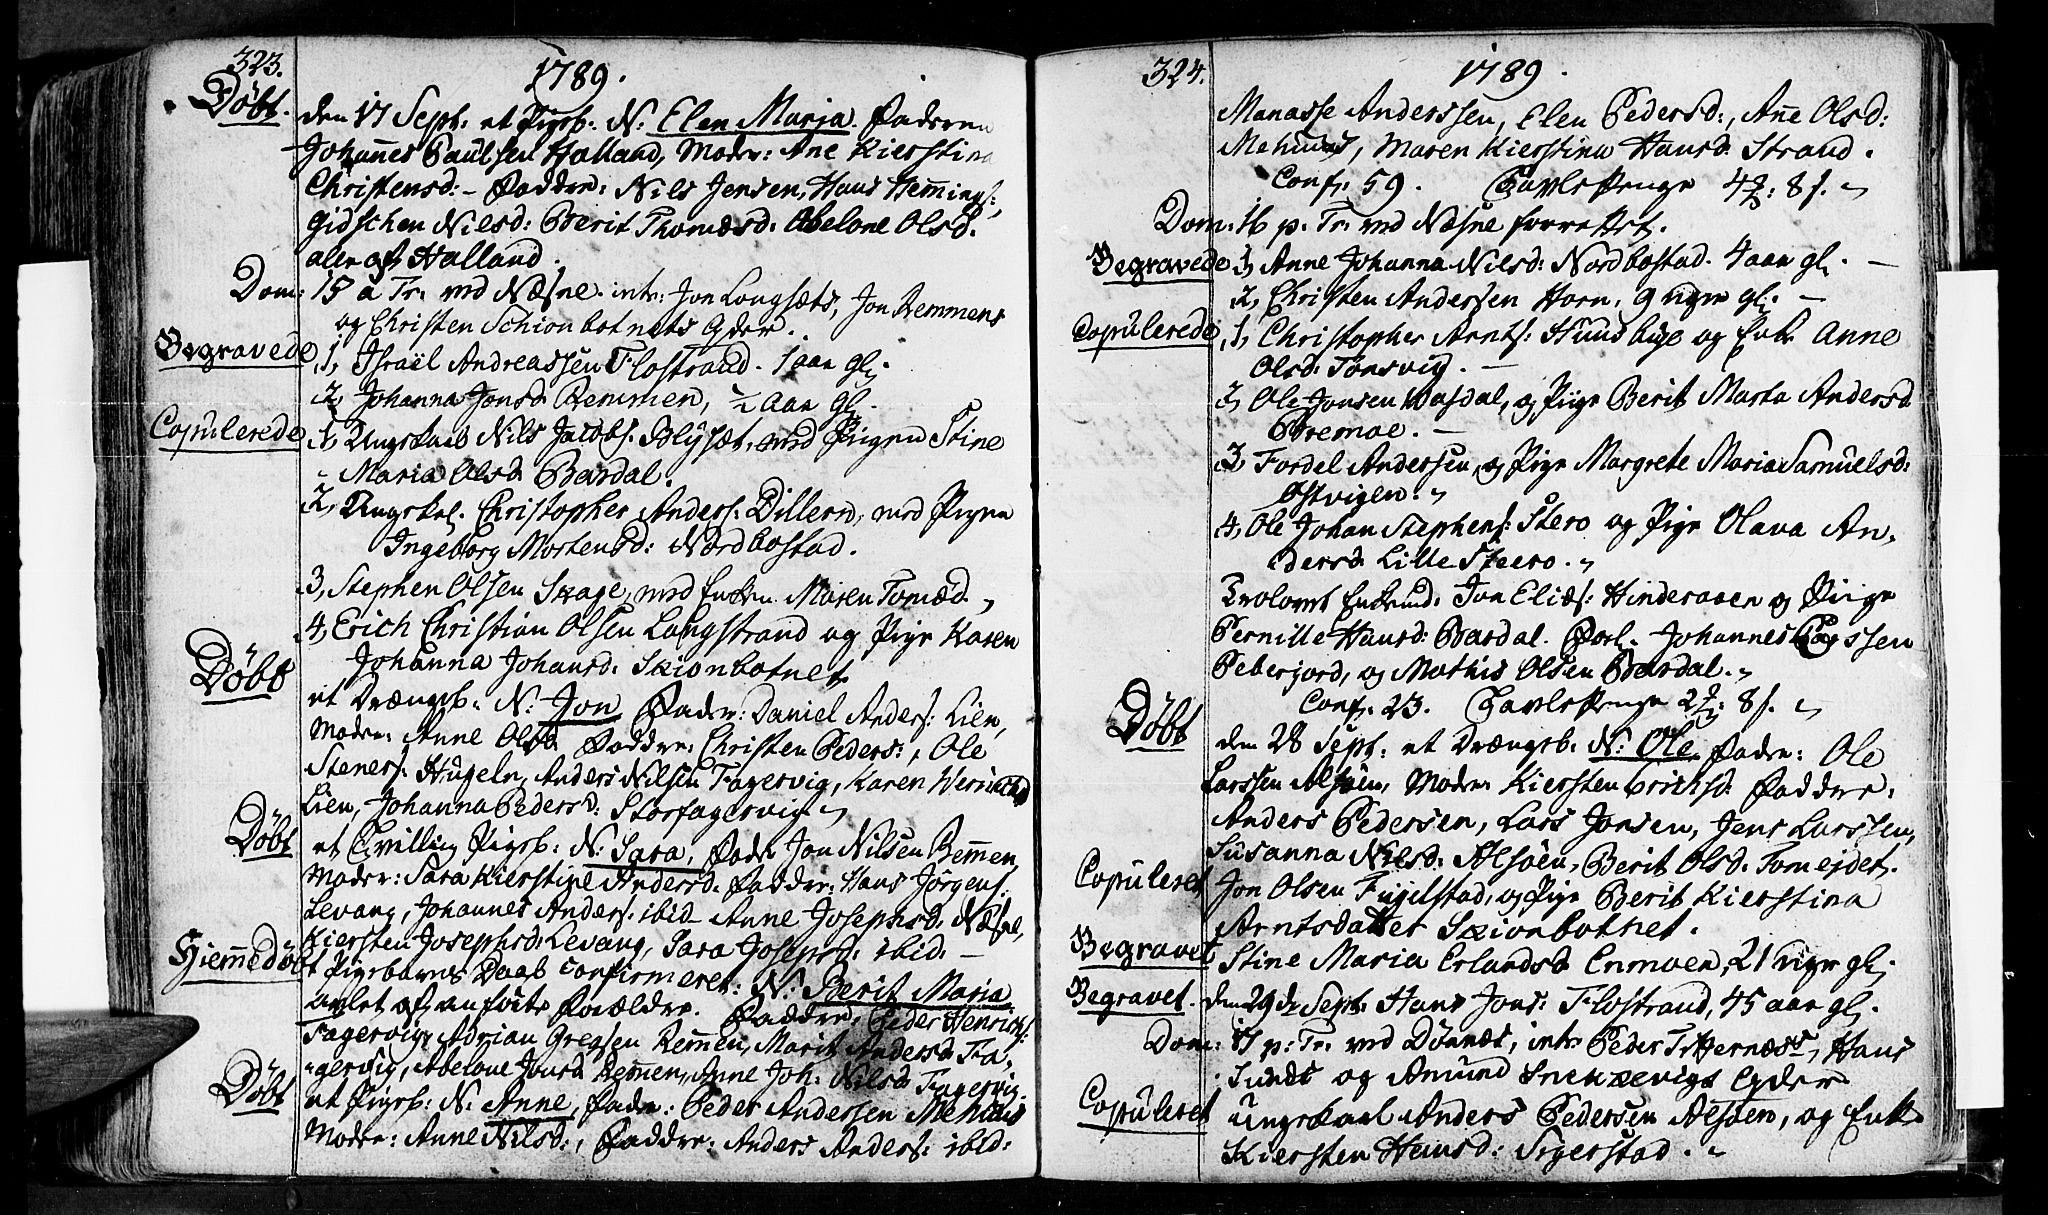 323.
1789.
Døbt. den 17 Sept: et Pigeb: N: Elen Maria. Faderen
Johannes Paulsen Halland, Moder: Ane Kierstina
Christensd: - Faddre: Nils Jensen, Hans Hemings:,
Gidschen Nielsd: Berit Thomæsd: Abelone Olsd.
alle af Halland.
Dom: 15 a Tr: ved Næsne. intr: Jon Langsæts, Jon Remmens
og Christen Schionbotnets Qder.
Begravede, 1, Jsraël Andreassen Flostrand. 1 aar gl:
2, Johanna Jonsd. Remmen, ½ aar gl.
Copulerede, 1, Ungskarl Nils Jacobs: Blysæt, med Pigen Stine
Maria Olsd. Bardal.
2, Ungskal. Christopher Anders: Dillern, med Pigen
Ingeborg Mortensd: Nordbostad.
3, Stephen Olsen Skage, med Enken Maren Tomæd.
4, Erich Christian Olsen Langstrand og Pige Karen
Johanna Johansd: Skionbotnet
Døbt et Drængeb: N: Jon Fader: Daniel Anders: Lien,
Moder: Anne Olsd. Faddre: Christen Peders:, Ole
Steners: Hugeln, Anders Nilsen Fagervig, Karen
Lien, Johanna Pedersd: Storfagervig
Døbt et Tvilling Pigeb: N: Sara, Fader Jon Nilsen Remen,
Moder: Sara Kierstine Andersd. Faddre: Hans Jörgens:
Levang, Johannes Anders: ibid Anne Josephsd. Næsne,
Kiersten Josephsd: Levang, Sara Josephsd: ibid. -
Hjemmedöbt Pigebarnes Daab Confirmeret: N: Berit Maria
avlet af Forældre. Faddre: Peder Henrichs:
Fagervig, Adrian Gregsen Remen, Marit Andersd. Fa,
gervig, Abelone Jonsd. Remen, Anne Joh: Nilsd. Fagervig.
Døbt et Pigeb: N: Anne, Fader: Peder Andersen Mehuus
Moder: Anne Nilsd:, Faddre: Anders Anders: ibid:
324.
1789.
Manasse Anderssen, Elen Pedersd:, Ane Olsd:
Mehuus, Maren Kierstina Hansd. Strand.
Conf: 59. Tavlepenge 4 8 s.
Dom: 16 p: Tr: ved Næsne forrettet.
Begravede 1, Anne Johanna Nilsd: Nordbostad. 4 aar gl. -
2, Christen Andersen Horn, 9 uger gl. -
Copulerede, 1, Christopher Arnts: Hundbuge og Enke Anne
Olsd: Tonsvig. -
2, Ole Jonsen Vasdal, og Pige Berit Marta Andersd.
Bremoe. -
3, Fordel Andersen, og Pige Margrete Maria Samuelsd:
Østvigen.
4, Ole Johan Stephens: Stero og Pige Olava An,
dersd. Lille Steero.
Trolovet Enkemd: Jon Eliæs: Hinderaaen og Pige
Pernille Hansd: Bardal. Forl: Johannes Larssen
Peberjord, og Mathis Olsen Bardal.
Conf: 23. Tavlepenge 2 8 s.
Døbt den 28 Sept: et Drængeb: N: Ole, Fader: Ole
Larssen Alsøen, Moder Kiersten Erichsd. Faddre:
Anders Pedersen, Lars Jonsen, Jens Larssen,
Susanna Nilsd: Alsøen, Berit Olsd. Tomeidet.
Copuleret Jon Olsen Fugelstad, og Pige Berit Kierstina
Arntsdatter Skionbotnet.
Begravet Stine Maria Erlandsd. Enmoen, 21 uger gl:
Begravet. den 29de Sept: Hans Jons: Flostrand, 45 aar gl.
Dom: 17 p: Tr: ved Dönnæs, intr Peder Hans
Sunds og Amund Snekkevigs Qder
Copuleret Ungekarl Anders Pedersen Alsøen, og Enke
Kiersten Hansd: Sigerstad.